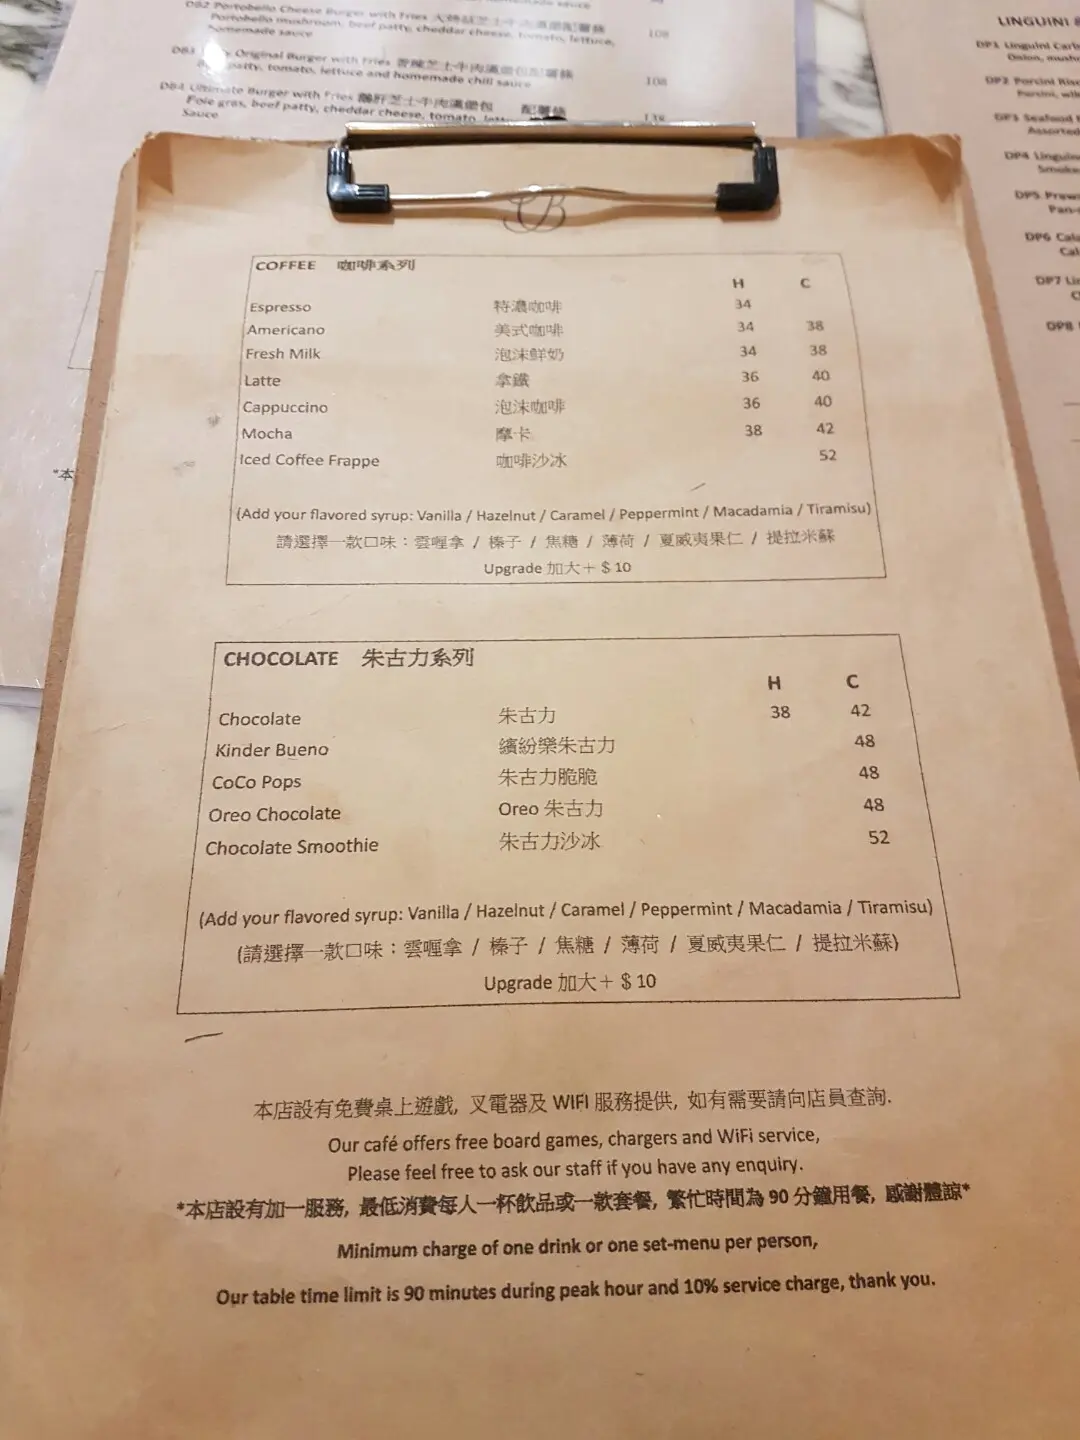 DB2 Portobello Cheese Burger with Fries 大蘑菇芝士牛肉漢堡配薯條
Portobello mushroom, beef patty, cheddar cheese, tomato, lettuce, 108
homemade sauce
DB3 Original Burger with Fries 香辣芝士牛肉漢堡包配薯條
patty, tomato, lettuce and homemade chili sauce 108
DB4 Ultimate Burger with Fries 鵝肝芝士牛肉漢堡包 配薯條
Foie gras, beef patty, cheddar cheese, tomato, 138
Sauce
LINGUINI
DP1 Linguini
Onion,
DP2 Porcini
Porcini,
DP3 Seafood
Assorted
DP4 Linguine
Smoke
DP5
Pan-
DP6 Cala
Cal
DP7
DP8
*本
CB
COFFEE 咖啡系列
H C
Espresso 特濃咖啡 34
Americano 美式咖啡 34 38
Fresh Milk 泡沫鮮奶 34 38
Latte 拿鐵 36 40
Cappuccino 泡沫咖啡 36 40
Mocha 摩卡 38 42
Iced Coffee Frappe 咖啡沙冰 52
(Add your flavored syrup: Vanilla / Hazelnut / Caramel / Peppermint / Macadamia / Tiramisu)
請選擇一款口味：雲喱拿 / 榛子 / 焦糖 / 薄荷 / 夏威夷果仁 / 提拉米蘇
Upgrade 加大＋ $ 10
CHOCOLATE 朱古力系列
H C
Chocolate 朱古力 38 42
Kinder Bueno 繽紛樂朱古力 48
CoCo Pops 朱古力脆脆 48
Oreo Chocolate Oreo 朱古力 48
Chocolate Smoothie 朱古力沙冰 52
(Add your flavored syrup: Vanilla / Hazelnut / Caramel / Peppermint / Macadamia / Tiramisu)
(請選擇一款口味：雲喱拿 / 榛子 / 焦糖 / 薄荷 / 夏威夷果仁 / 提拉米蘇)
Upgrade 加大＋ $ 10
本店設有免費桌上遊戲, 叉電器及 WIFI 服務提供, 如有需要請向店員查詢.
Our café offers free board games, chargers and WiFi service,
Please feel free to ask our staff if you have any enquiry.
*本店設有加一服務, 最低消費每人一杯飲品或一款套餐, 繁忙時間為 90 分鐘用餐, 感謝體諒*
Minimum charge of one drink or one set-menu per person,
Our table time limit is 90 minutes during peak hour and 10% service charge, thank you.